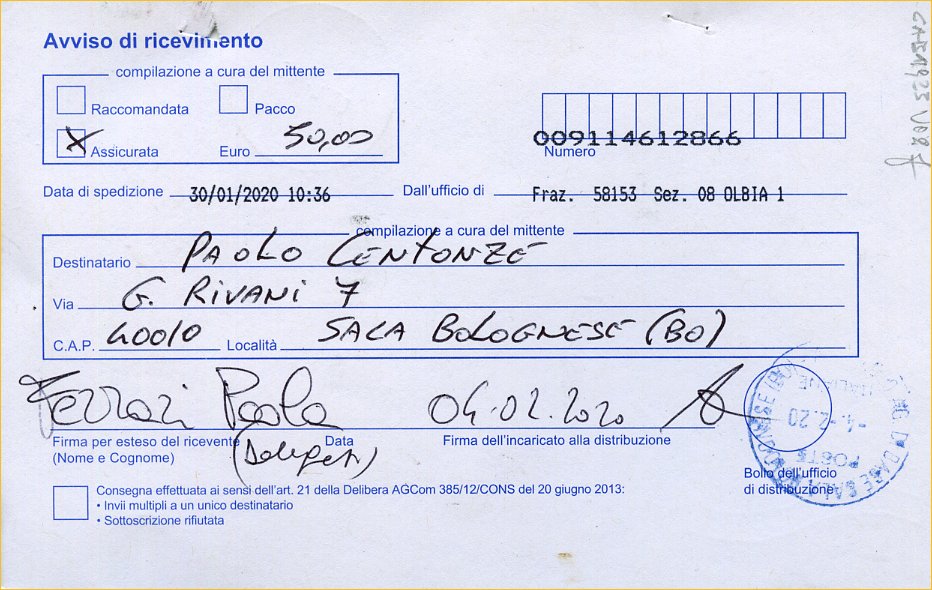 Avviso di ricevimento
compilazione a cura del mittente
Raccomandata Pacco
X Assicurata Euro 50,00
009114612866
Numero
Data di spedizione 30/01/2020 10:36 Dall'ufficio di Fraz. 58153 Sez. 08 OLBIA 1
compilazione a cura del mittente
Destinatario PAOLO CENTONZE
Via G. RIVANI 7
C.A.P. 40010 Località SALA BOLOGNESE (BO)
Ferrari Paola 04.02.2020
Firma per esteso del ricevente Data Firma dell'incaricato alla distribuzione
(Nome e Cognome)
Bollo dell'ufficio
di distribuzione
-4.2.20
POSTE
Consegna effettuata ai sensi dell'art. 21 della Delibera AGCom 385/12/CONS del 20 giugno 2013:
• Invii multipli a un unico destinatario
• Sottoscrizione rifiutata